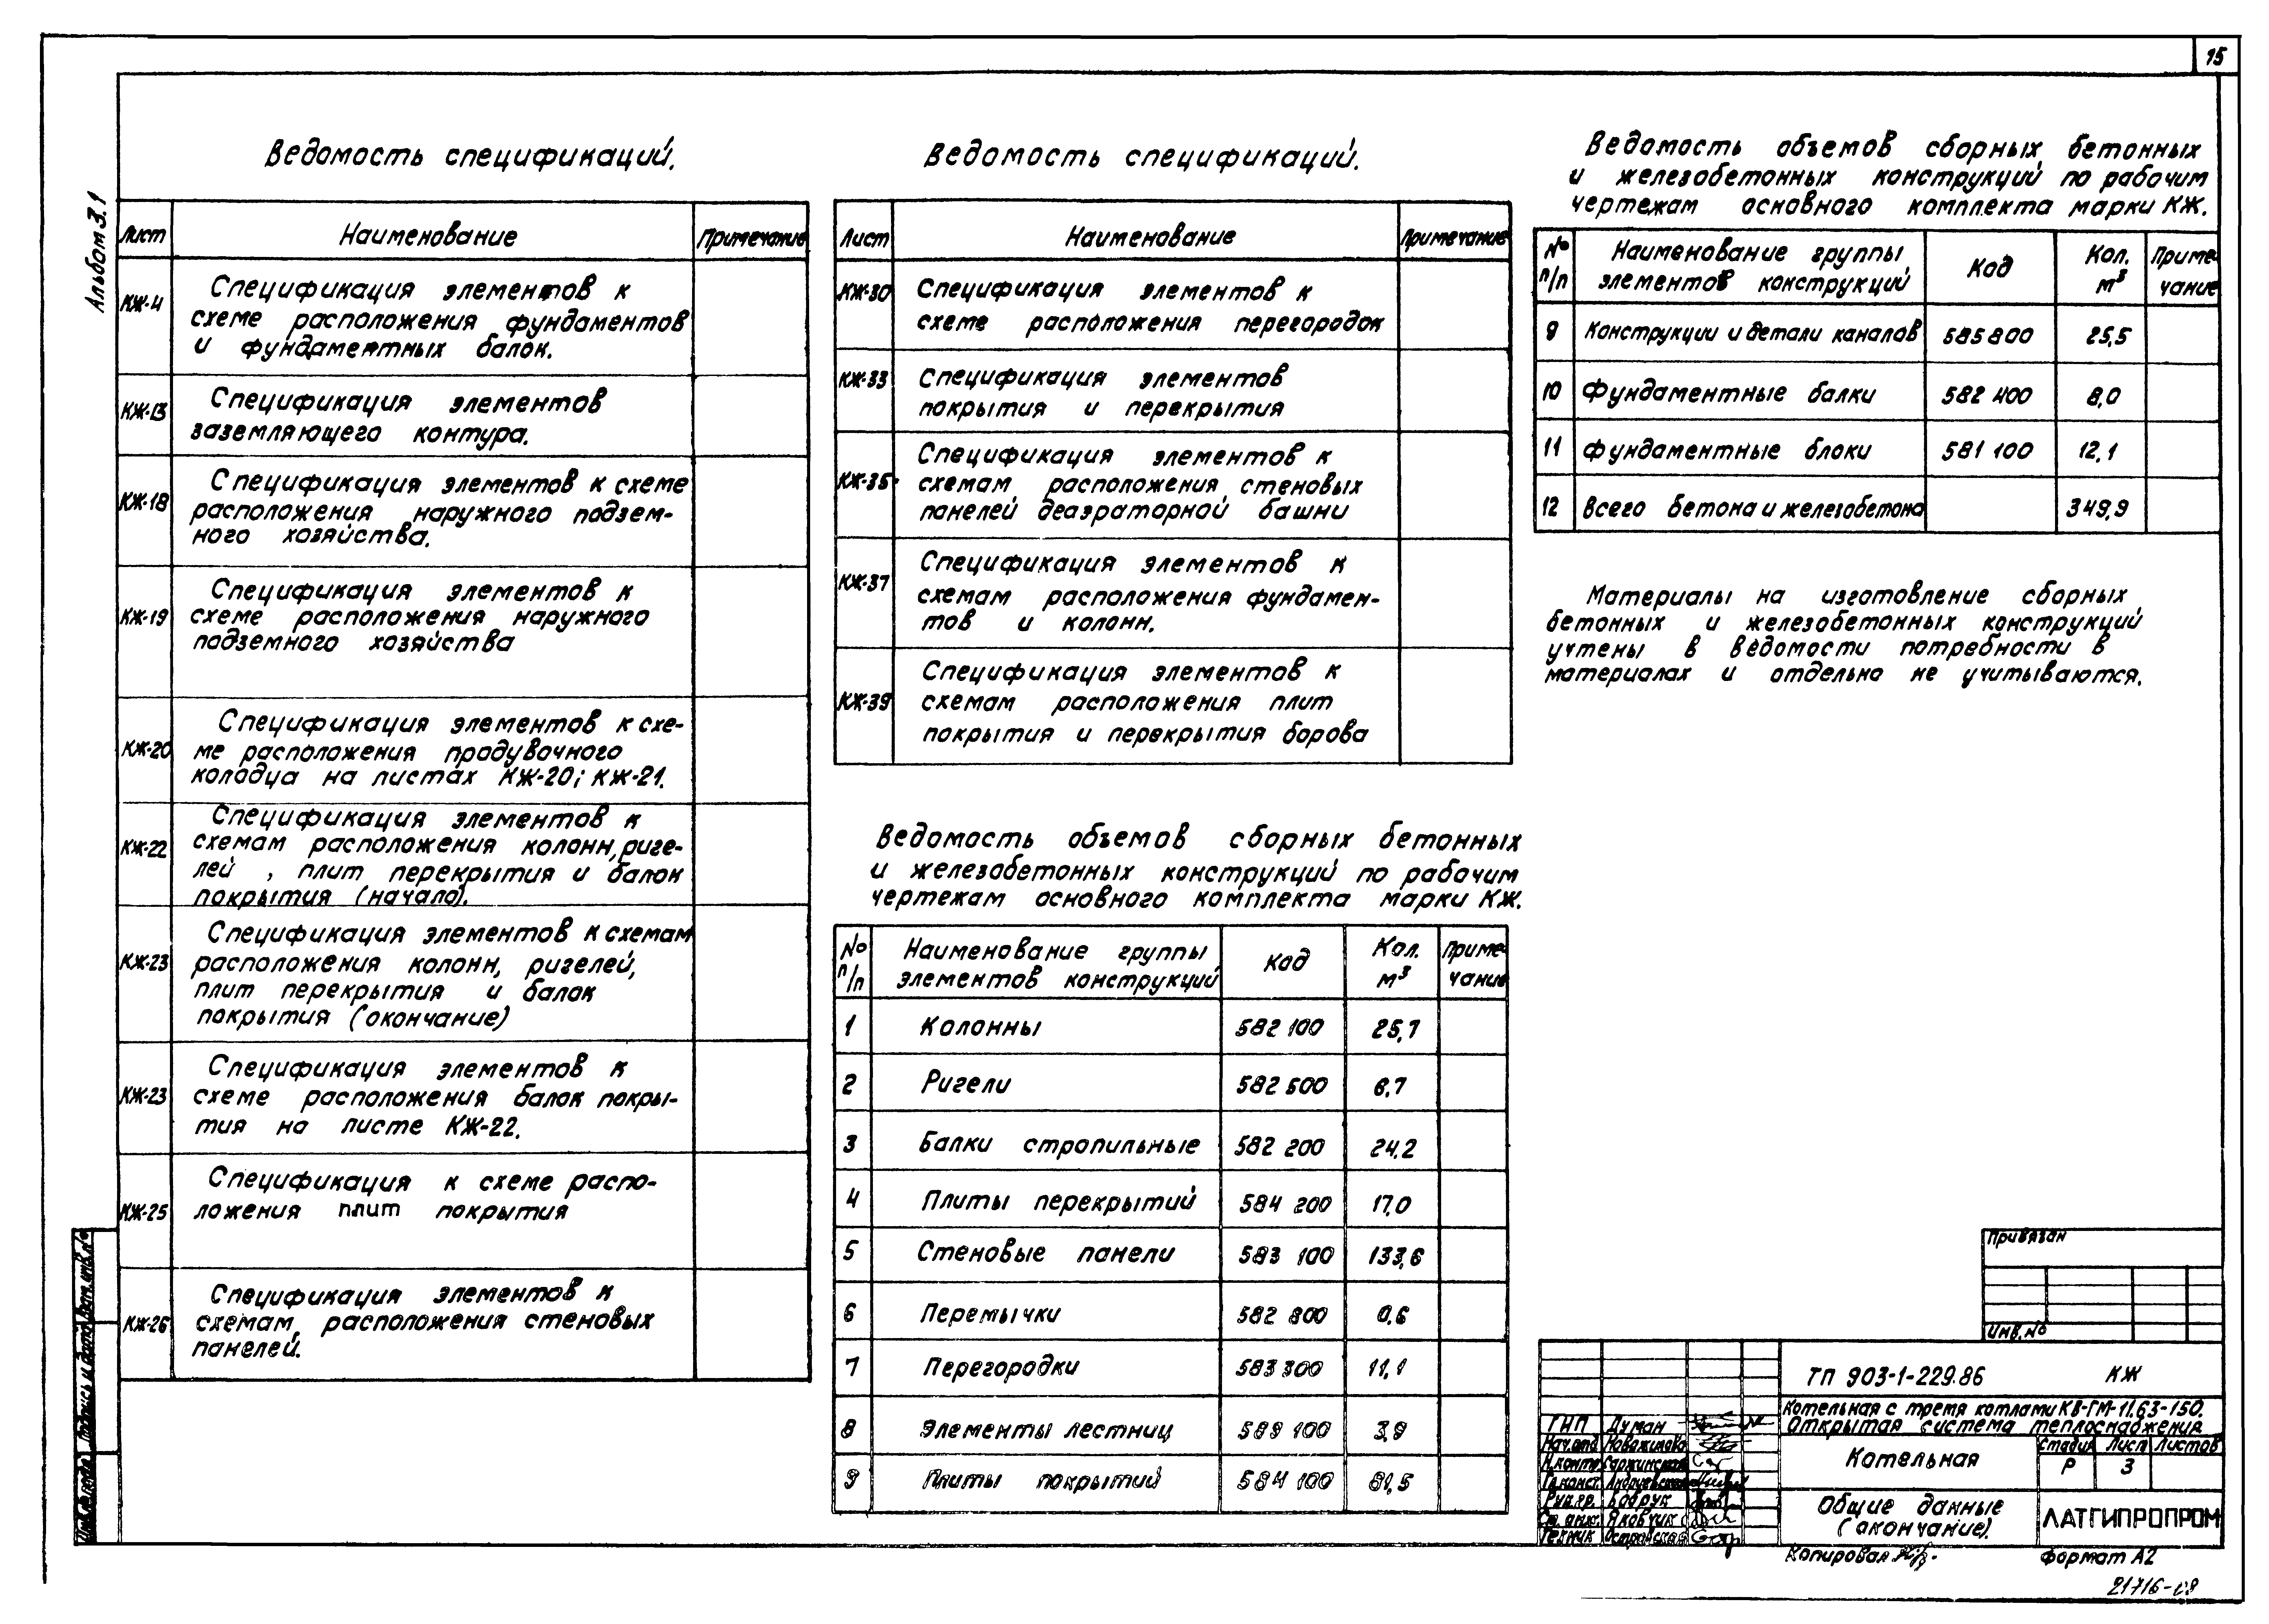 15
Альбом 3.1
Ведомость спецификаций.
Лист Наименование Примечание
КЖ-4 Спецификация элементов к
схеме расположения фундаментов
и фундаментных балок.
КЖ-13 Спецификация элементов
заземляющего контура.
КЖ-18 Спецификация элементов к схеме
расположения наружного подзем-
ного хозяйства.
КЖ-19 Спецификация элементов к
схеме расположения наружного
подземного хозяйства
КЖ-20 Спецификация элементов к схе-
ме расположения продувочного
колодца на листах КЖ-20; КЖ-21.
КЖ-22 Спецификация элементов к
схемам расположения колонн, риге-
лей , плит перекрытия и балок
покрытия (начало).
КЖ-23 Спецификация элементов к схемам
расположения колонн, ригелей,
плит перекрытия и балок
покрытия (окончание)
КЖ-23 Спецификация элементов к
схеме расположения балок покры-
тия на листе КЖ-22.
КЖ-25 Спецификация к схеме распо-
ложения плит покрытия
КЖ-26 Спецификация элементов к
схемам расположения стеновых
панелей.
Ведомость спецификаций.
Лист Наименование Примечание
КЖ-30 Спецификация элементов к
схеме расположения перегородок
КЖ-33 Спецификация элементов
покрытия и перекрытия
КЖ-35 Спецификация элементов к
схемам расположения стеновых
панелей деаэраторной башни
КЖ-37 Спецификация элементов к
схемам расположения фундамен-
тов и колонн.
КЖ-39 Спецификация элементов к
схемам расположения плит
покрытия и перекрытия борова
Ведомость объемов сборных бетонных
и железобетонных конструкций по рабочим
чертежам основного комплекта марки КЖ.
№ п/п Наименование группы элементов конструкций Код Кол. м³ Приме-чание
1 Колонны 582 100 25,7
2 Ригели 582 500 6,7
3 Балки стропильные 582 200 24,2
4 Плиты перекрытий 584 200 17,0
5 Стеновые панели 583 100 133,6
6 Перемычки 582 800 0,6
7 Перегородки 583 300 11,1
8 Элементы лестниц 589 100 3,9
9 Плиты покрытий 584 100 81,5
Ведомость объемов сборных бетонных
и железобетонных конструкций по рабочим
чертежам основного комплекта марки КЖ.
№ п/п Наименование группы элементов конструкций Код Кол. м³ Приме-чание
9 Конструкции и детали каналов 585 800 25,5
10 Фундаментные балки 582 400 8,0
11 Фундаментные блоки 581 100 12,1
12 Всего бетона и железобетона 349,9
Материалы на изготовление сборных
бетонных и железобетонных конструкций
учтены в ведомости потребности в
материалах и отдельно не учитываются.
Привязан
Инв. №
ТП 903-1-229.86 КЖ
Котельная с тремя котлами КВ-ГМ-11,63-150.
Открытая система теплоснабжения
Котельная
Стадия Лист Листов
Р 3
Общие данные
(окончание).
ЛАТГИПРОПРОМ
ГИП Думан
Нач.отд
Н.контр
Гл.конст.
Рук.гр. Бобрук
Ст. инж. Якобчик
Техник
Копировал
Формат А2
21716-08
Инв.№подл. Подпись и дата Взам.инв.№